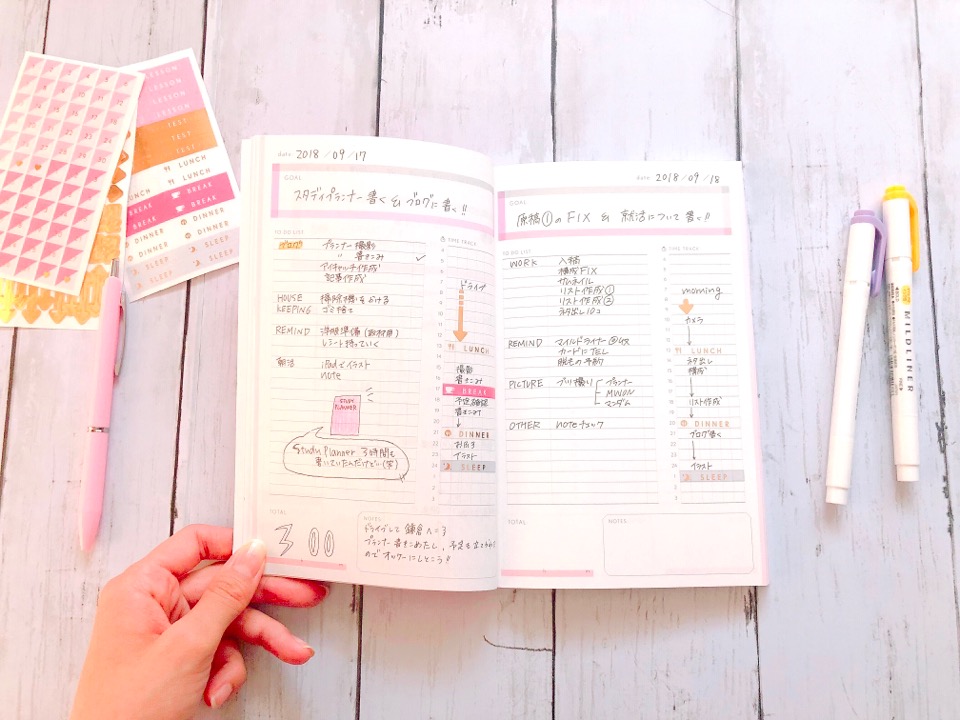 LESSON
LESSON
LESSON
LESSON
TEST
TEST
TEST
LUNCH
LUNCH
LUNCH
BREAK
BREAK
DINNER
DINNER
DINNER
DINNER
SLEEP
SLEEP
SLEEP
SLEEP
date: 2018/09/17
GOAL
スタディプランナー書く & ブログに書く!!
TO DO LIST
ブログ プランナー撮影
〃 書きこみ ✓
アイキャッチ作成
記事作成
HOUSE 掃除機をかける
KEEPING ゴミ捨て
REMIND
レシート持っていく
朝活 iPadでイラスト
note
STUDY
PLANNER
Study Planner 3時間も
書いていたんだけど!(笑)
TOTAL
3 00
TIME TRACK
ドライブ
LUNCH
撮影
書きこみ
BREAK
予定確認
書きこみ
DINNER
お風呂
イラスト
SLEEP
NOTES
ドライブして鎌倉へ
date: 2018/09/18
GOAL
原稿①のFIX & 就活について書く!!
TO DO LIST
WORK 入稿
構成FIX
サムネイル
リスト作成①
リスト作成②
ネタ出し10コ
REMIND マイルドライナー
カードにTEL
脱毛の予約
PICTURE ブツ撮り プランナー
マンダム
OTHER noteチェック
TOTAL
TIME TRACK
morning
カメラ
LUNCH
ネタ出し
構成
リスト作成
DINNER
ブログ書く
イラスト
SLEEP
NOTES
MILDLINER